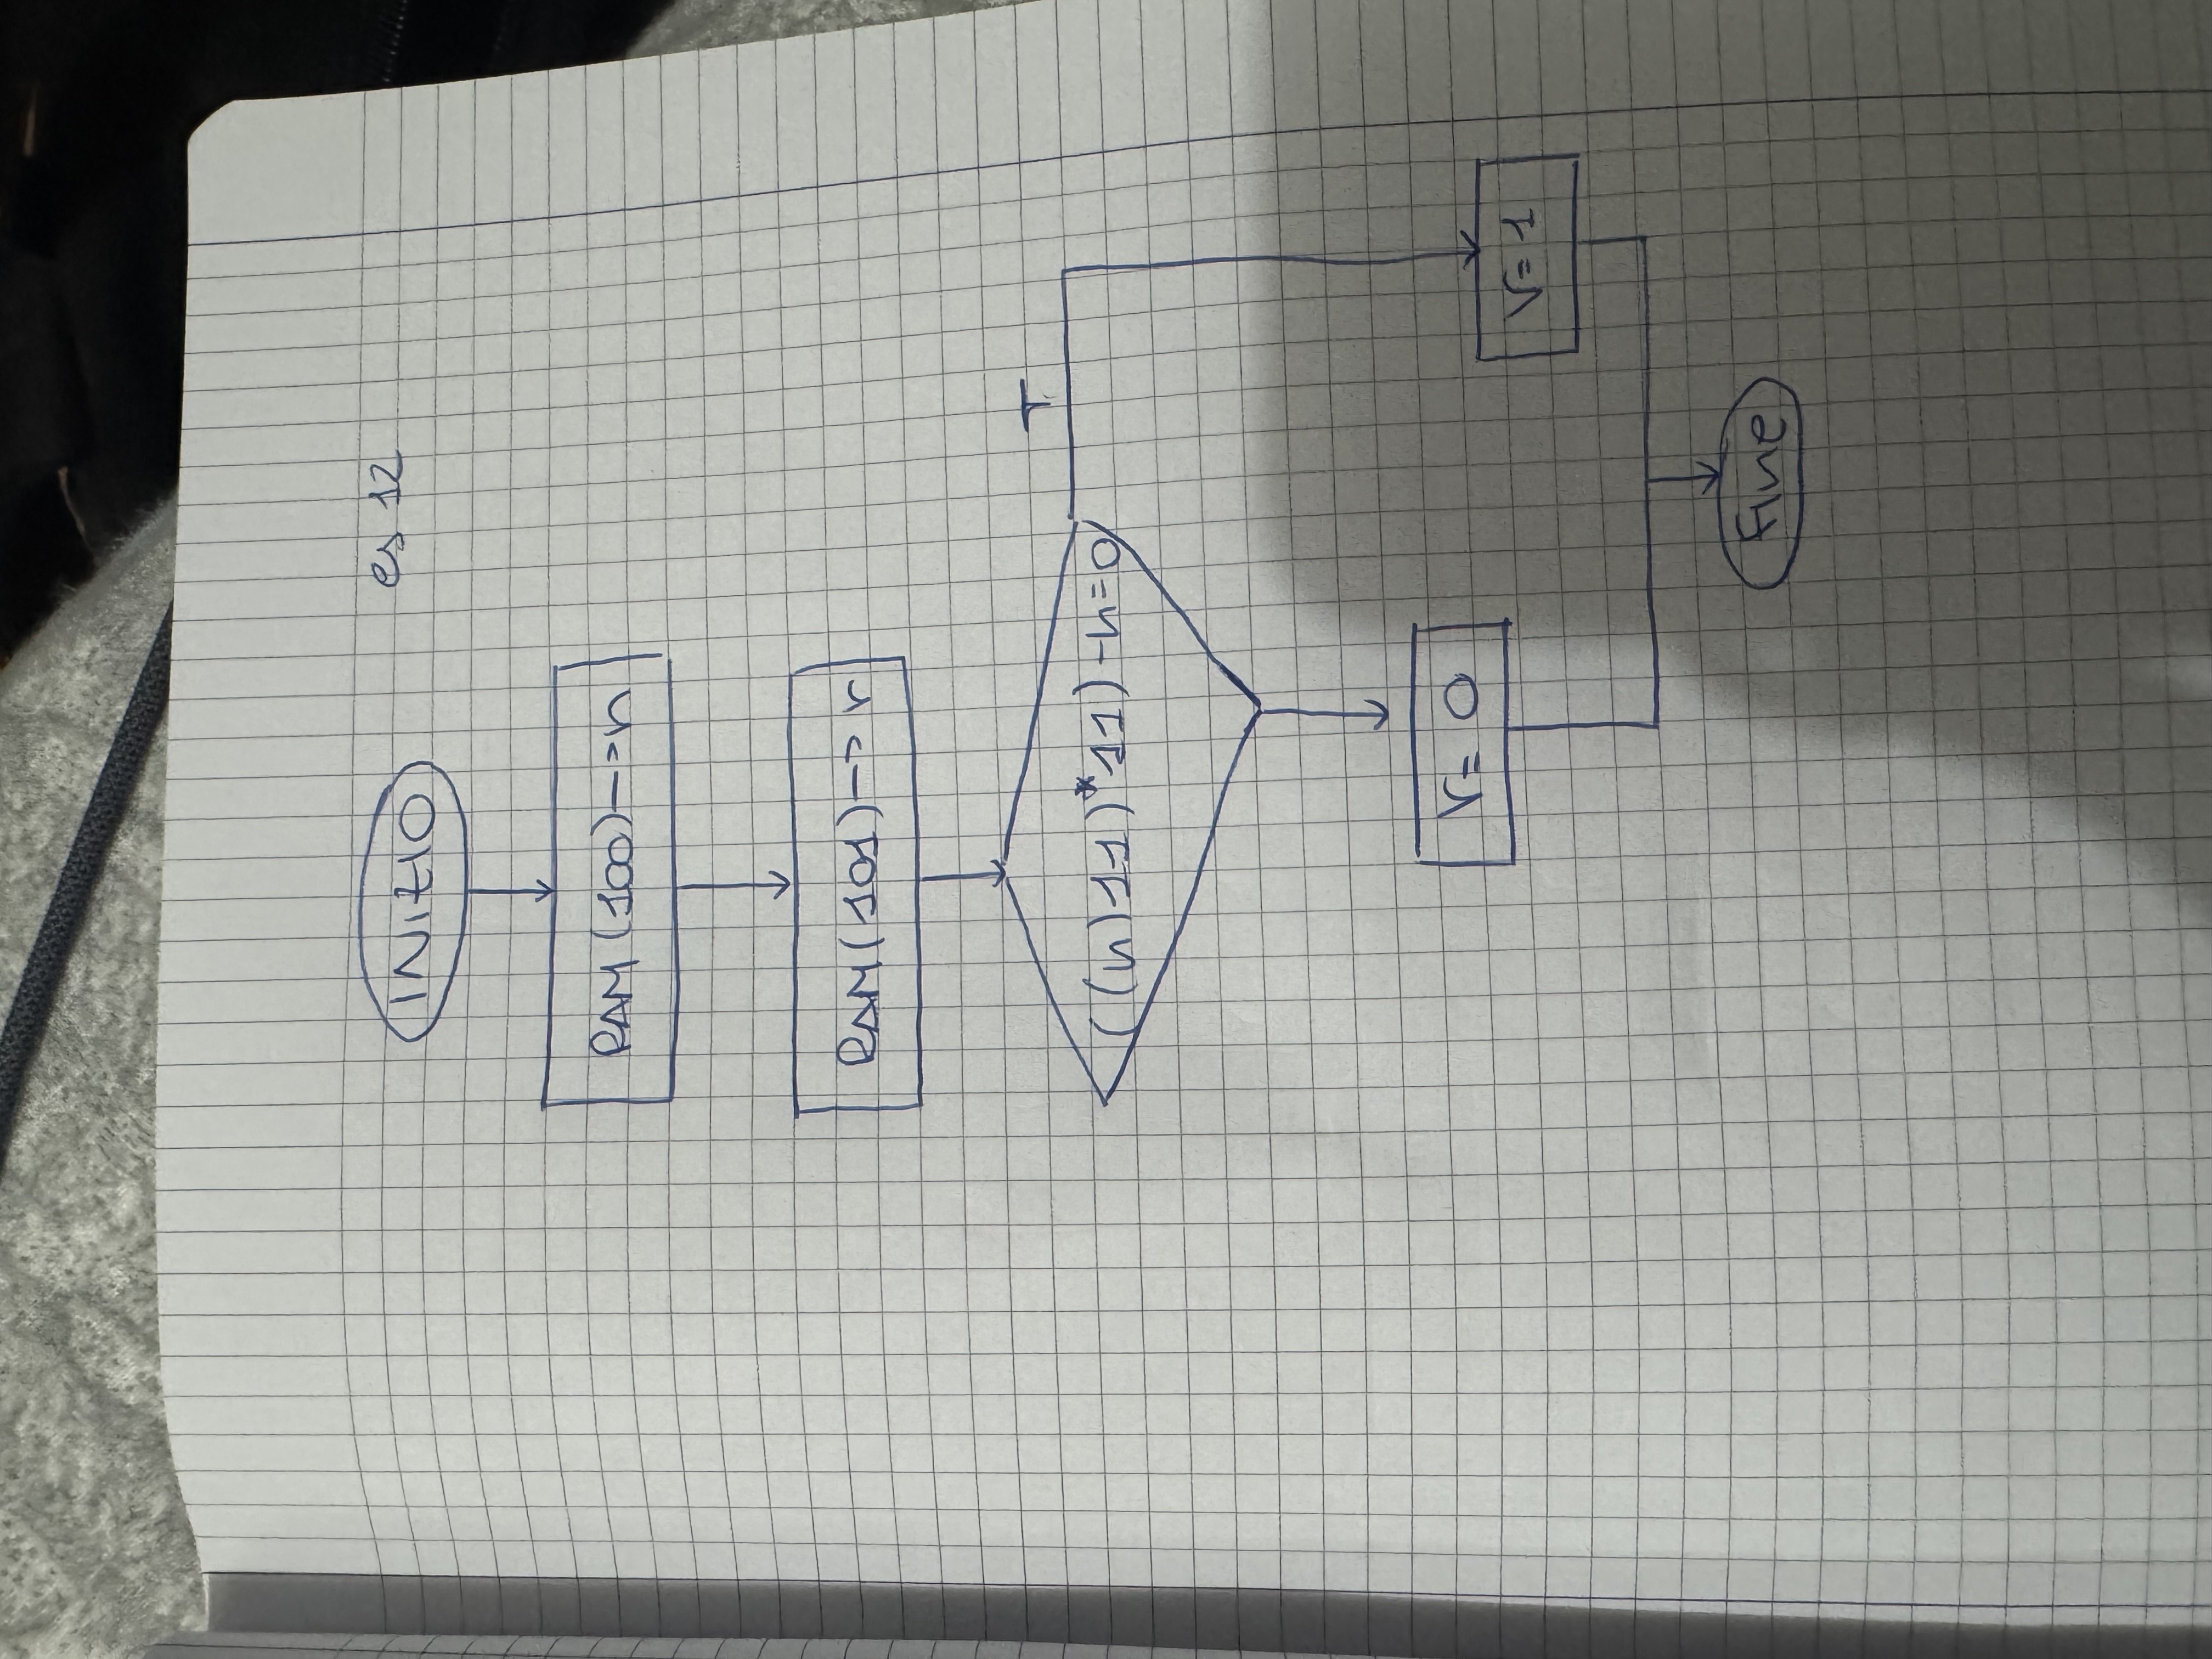 es 12
INIZIO
RAM (100) --> n
RAM (101) --> r
((n)11)*11) - n = 0
T
r = 0
r = 1
Fine